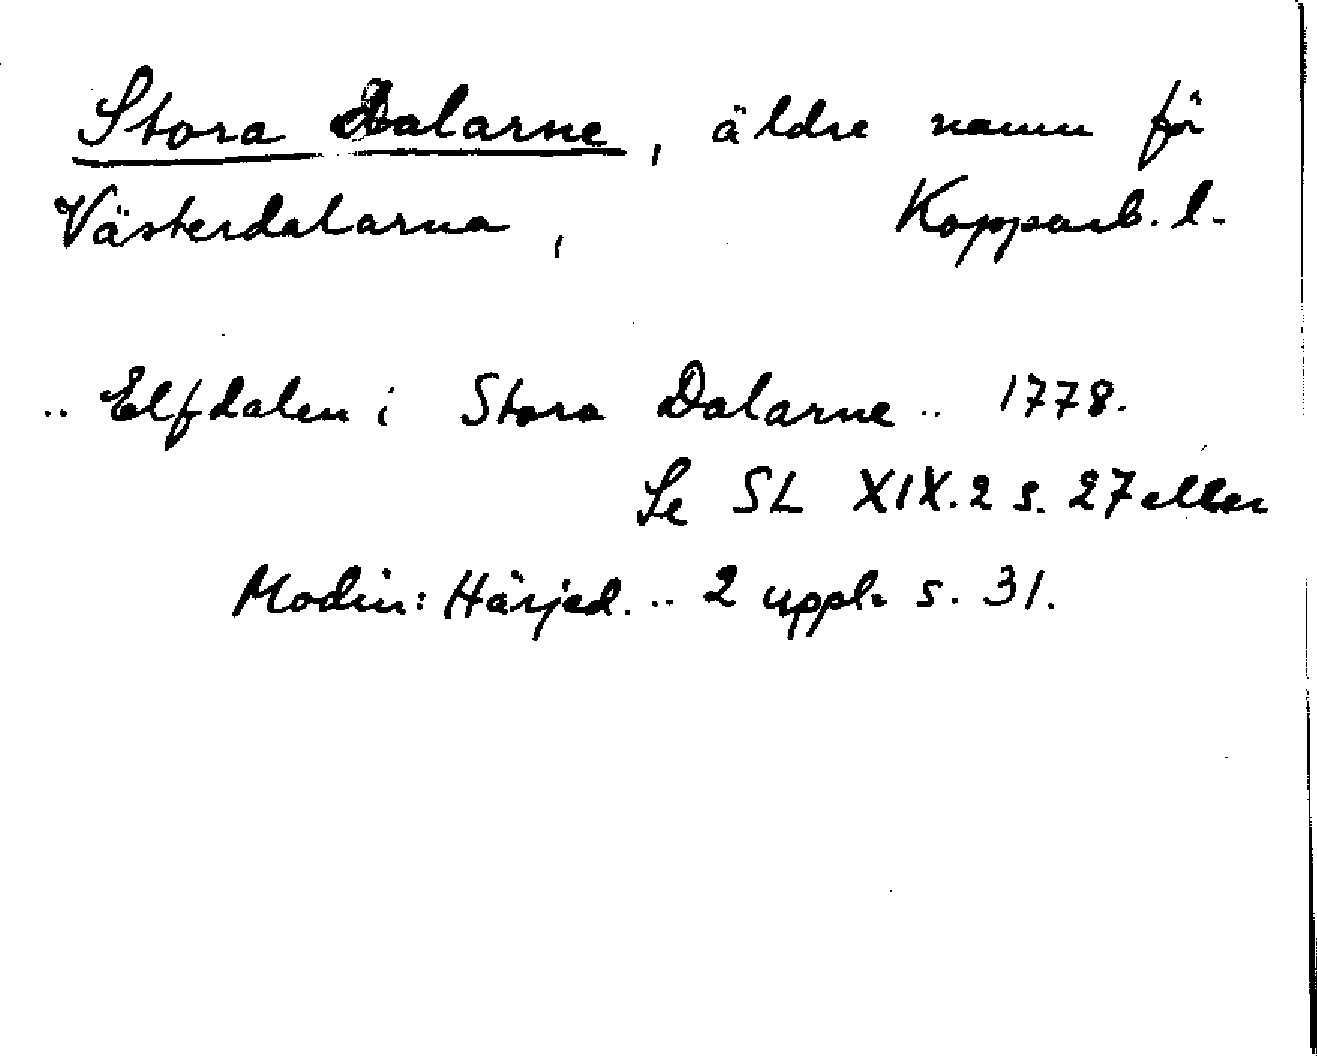 Stora Dalarne, äldre namn för
Västerdalarna, Kopparb. l.
.. Elfdalen i Stora Dalarne .. 1778.
Se SL XIX.2 s. 27 eller
Modin: Härjed. .. 2 uppl. s. 31.